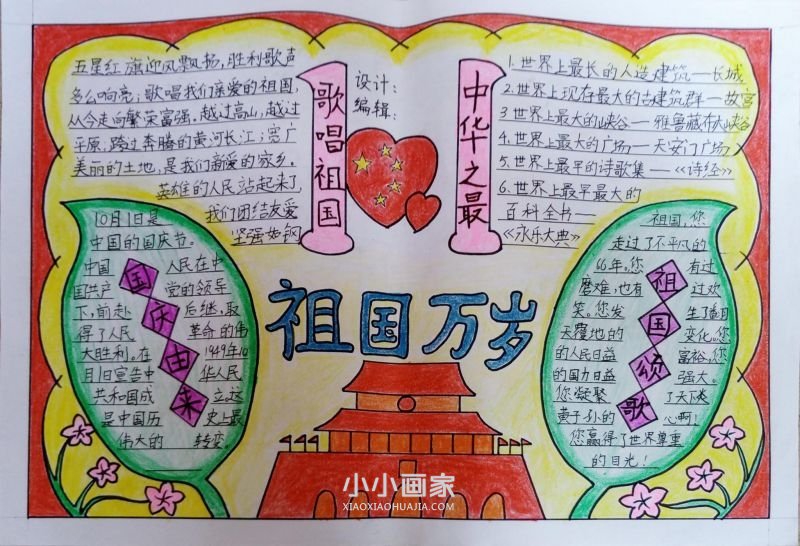 五星红旗迎风飘扬，胜利歌声
多么响亮；歌唱我们亲爱的祖国，
从今走向繁荣富强。越过高山，越过
平原；跨过奔腾的黄河长江；宽广
美丽的土地，是我们亲爱的家乡。
英雄的人民站起来了，
我们团结友爱
坚强如钢
歌唱祖国
设计：
编辑：
中华之最
1.世界上最长的人造建筑——长城，
2.世界上现存最大的古建筑群——故宫
3.世界上最大的峡谷——雅鲁藏布大峡谷
4.世界上最大的广场——天安门广场
5.世界上最早的诗歌集——《诗经》
6.世界上最早最大的
百科全书——
《永乐大典》
10月1日是
中国的国庆节。
中国 人民在中
国共产 党的领导
下，前赴 后继，取
得了人民 革命的伟
大胜利。在 1949年10
月1日宣告中 华人民
共和国成 立。这
是中国历 史上最
伟大的 转变。
国庆由来
祖国万岁
祖国，您
走过了不平凡的
66年。您 有过
磨难，也有 过欢
笑。您发 生了翻
天覆地的 变化。您
的人民日益 富裕，您
的国力日益 强大。
您凝聚 了天下炎
黄子孙的 心啊！
您赢得了世界尊重
的目光！
祖国颂歌
小小画家
XIAOXIAOHUAJIA.COM